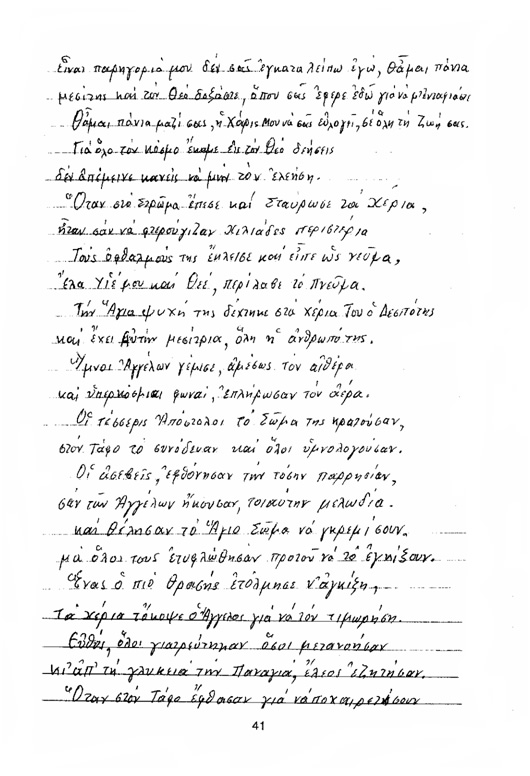 εἶναι παρηγοριά μου δέν σᾶς ἐγκαταλείπω ἐγώ, θἆμαι πάντα
μεσίτης καί τόν Θεό δοξάστε, ὅπου σᾶς ἔφερε ἐδῶ γιά νά μ' ἐνταφιάστε
Θἆμαι πάντα μαζί σας, ἡ Χάρις Μου νά σᾶς εὐλογῇ, σέ ὅλη τή ζωή σας.
Γιά ὅλο τόν κόσμο ἔκαμε εἰς τόν Θεό δεήσεις
δέν ἀπέμεινε κανείς νά μήν τόν ἐλεήση.
Ὅταν στό στρῶμα ἔπεσε καί σταύρωσε τά χέρια,
ἦταν σάν νά φτερούγιζαν χιλιάδες περιστέρια
Τούς ὀφθαλμούς της ἔκλεισε καί εἶπε ὡς νεῦμα,
Ἔλα Υἱέ μου καί Θεέ, περίλαβε τό Πνεῦμα.
Τήν Ἅγια ψυχή της δέχτηκε στά χέρια Του ὁ Δεσπότης
καί ἔχει Αὐτήν μεσίτρια, ὅλη ἡ ἀνθρωπότης.
Ὕμνοι Ἀγγέλων γέμισε, ἀμέσως τόν αἰθέρα
καί ὑπερκόσμιαι φωναί, ἐπλήρωσαν τόν ἀέρα.
Οἱ τέσσερις Ἀπόστολοι τό Σῶμα της κρατοῦσαν,
στόν Τάφο τό συνόδευαν καί ὅλοι ὑμνολογοῦσαν.
Οἱ ἀσεβεῖς, ἐφθόνησαν τήν τόσην παρρησίαν,
σάν τῶν Ἀγγέλων ἤκουσαν, τοιαύτην μελωδία.
καί θέλησαν τό Ἅγιο Σῶμα νά γκρεμίσουν.
μά ὅλοι τους ἐτυφλώθησαν προτοῦ νά τό ἐγκίξουν.
Ἕνας ὁ πιό θρασής ἐτόλμησε ν' ἀγκίξη,
τά χέρια τὄκοψε ὁ Ἄγγελος γιά νά τόν τιμωρήση.
Εὐθύς, ὅλοι γιατρεύτηκαν ὅσοι μετανοῆσαν
κι' ἀπ' τή γλυκειά τήν Παναγιά, ἔλεος ἐζητῆσαν.
Ὅταν στόν Τάφο ἔφθασαν γιά νά ποχαιρετήσουν
41